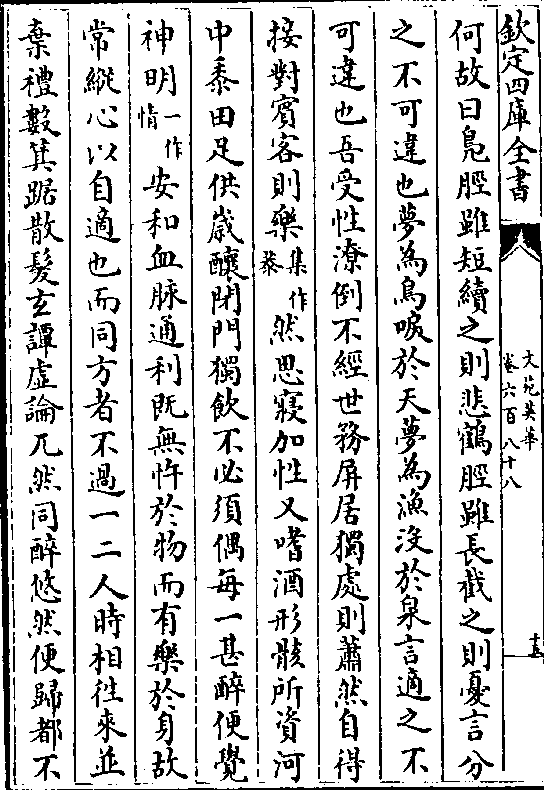 欽定四庫全書
文苑英華
卷六百八十八
十五
何故曰鳬脛雖短續之則悲鶴脛雖長截之則憂言分
之不可違也夢為鳥唳於天夢為漁沒於泉言適之不
可違也吾受性潦倒不經世務屏居獨處則蕭然自得
接對賓客則樂集作 䓗然思寢加性又嗜酒形骸所資河
中黍田足供歲釀閉門獨飲不必須偶每一甚醉便覺
神明一作 情安和血脉通利既無忤於物而有樂於身故
常縱心以自適也而同方者不過一二人時相徃來並
棄禮數箕踞散髮玄譚虛論兀然同醉悠然便歸都不